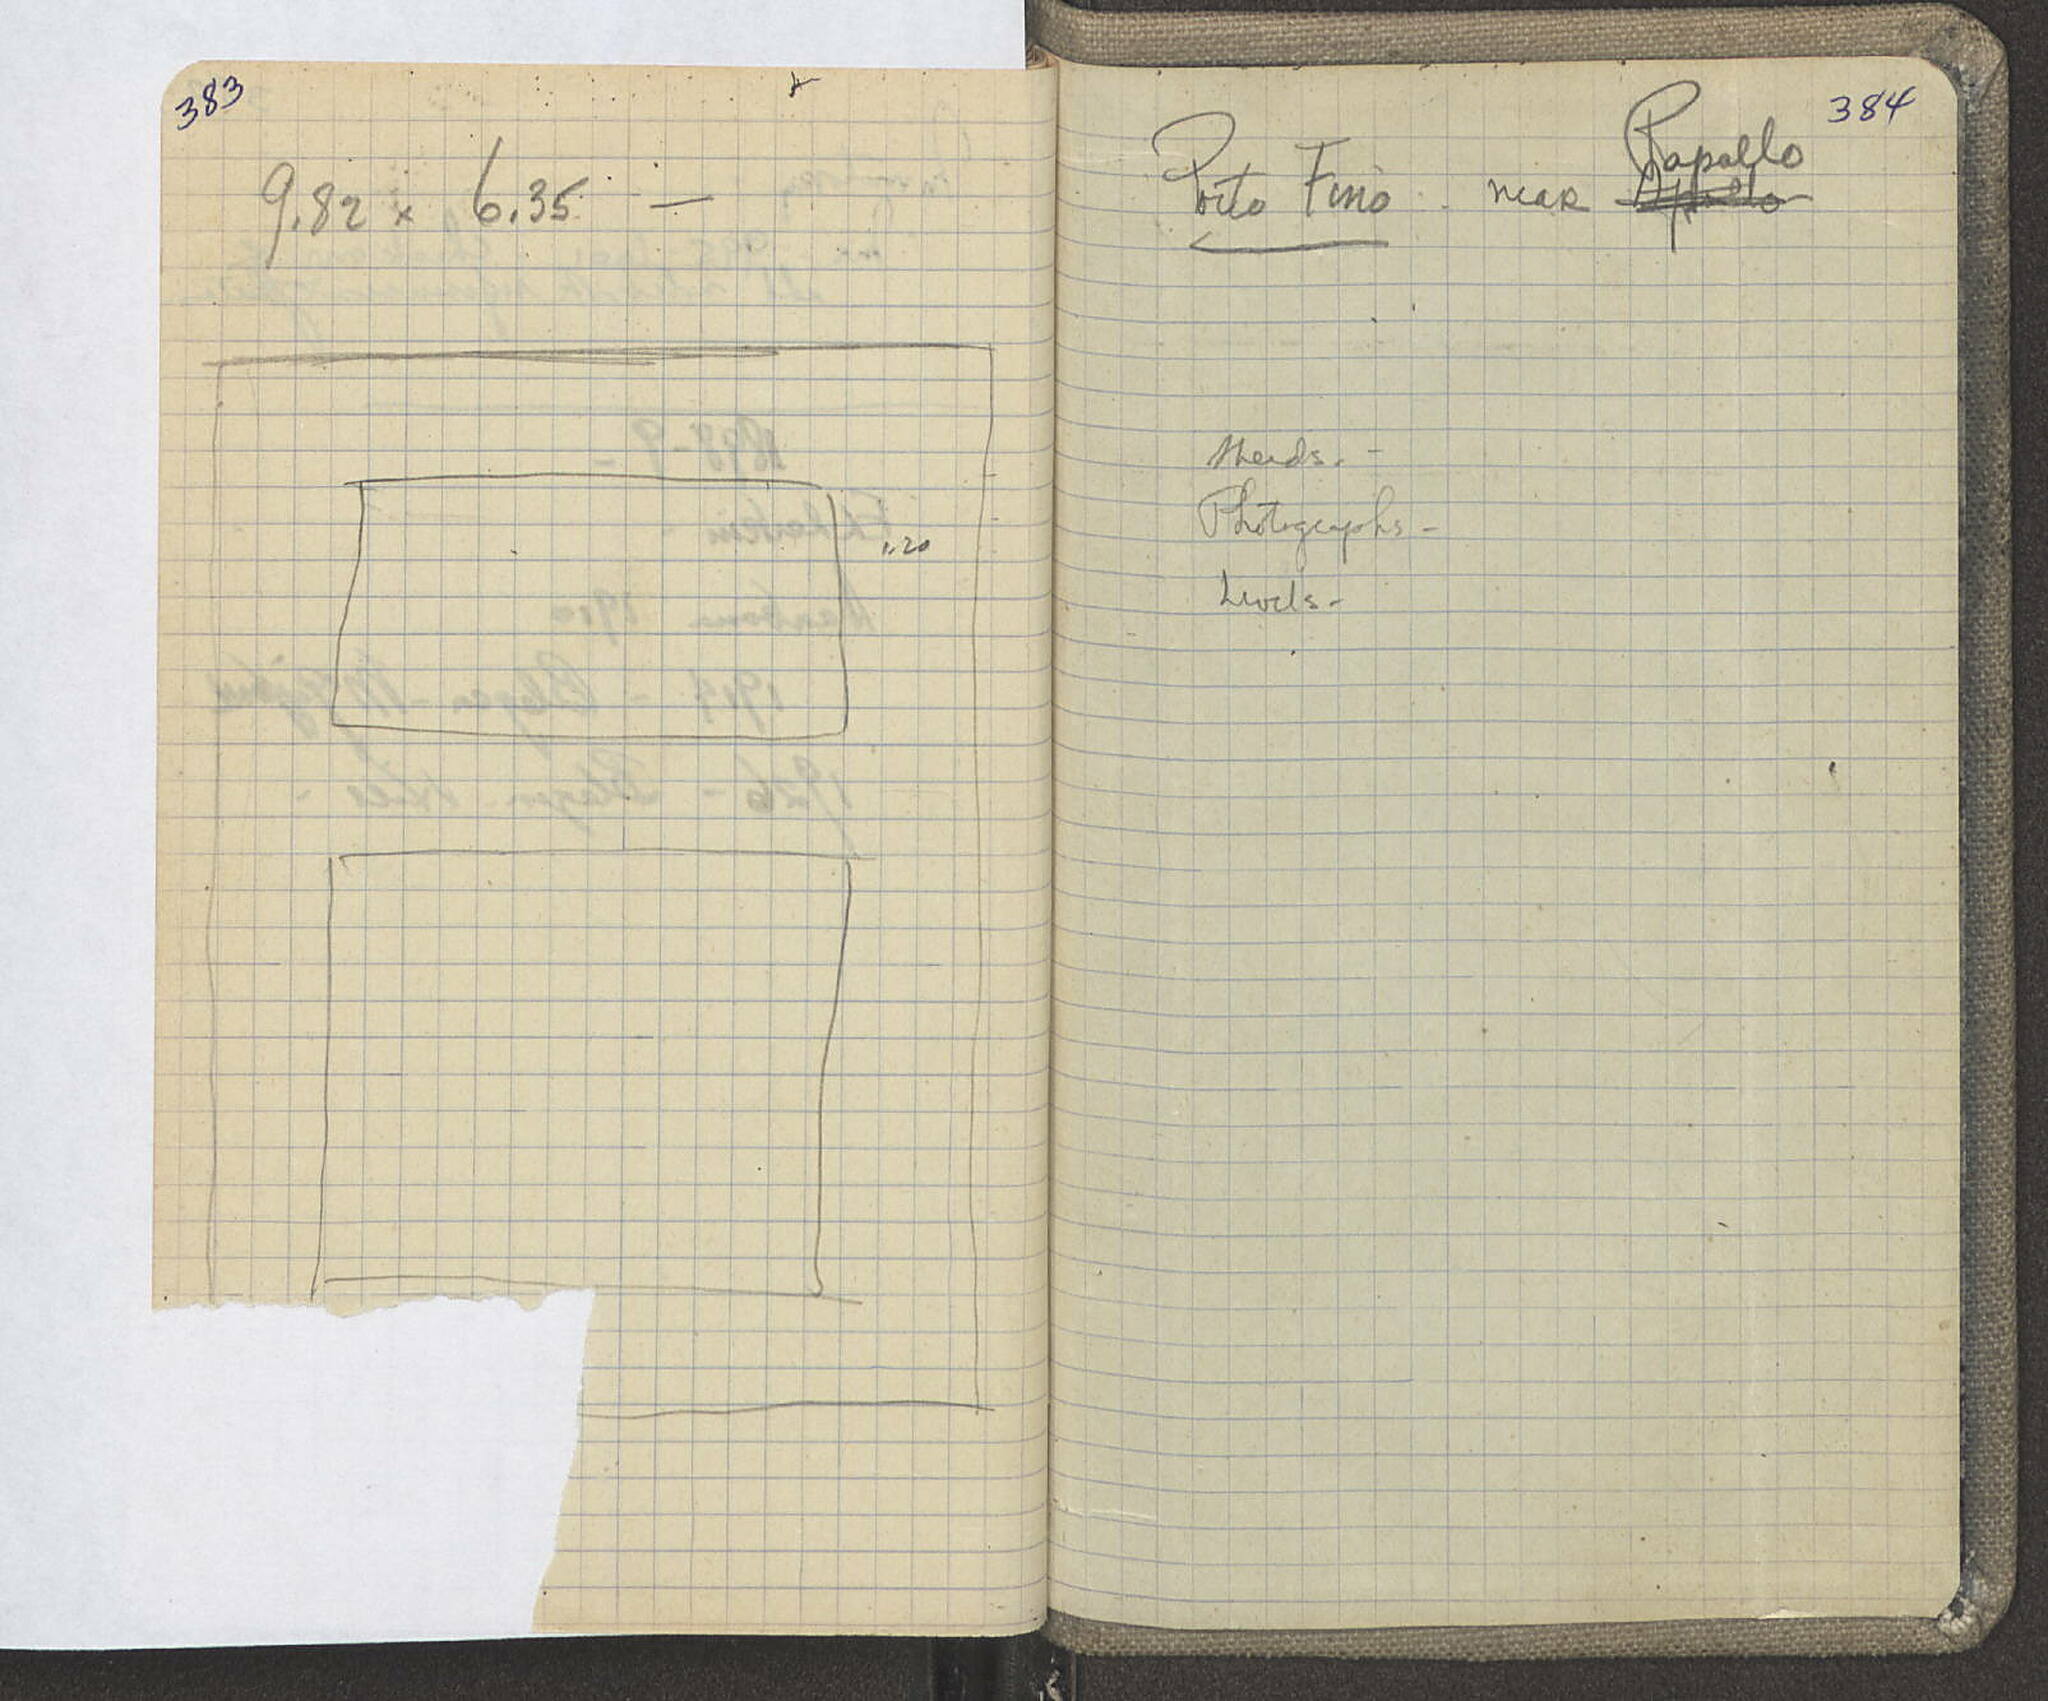 383
9.82 x 6.35 —
1.20
384
Porto Fino. near Rapallo
Sherds. -
Photographs -
Levels -